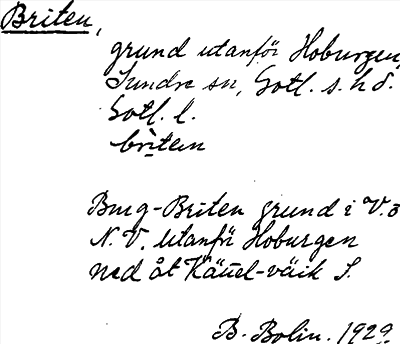 Briten,
grund utanför Hoburgen,
Sundre sn, Gotl. s. h d.
Gotl. l.
britein
Burg-Briten grund i V. o
N.V. utanför Hoburgen
ned åt Käuel-väik S.
B. Bolin. 1929